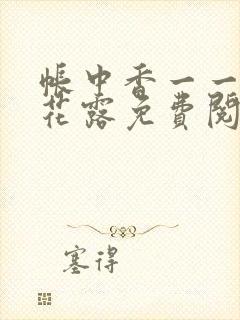 帐中香一一
花露免费阅
塞得